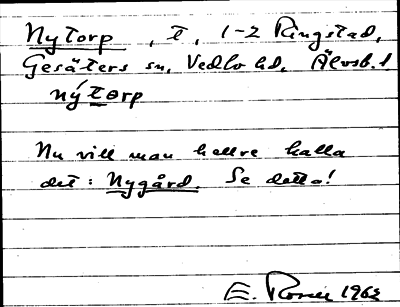 Nytorp, t, 1-2 Ringstad,
Gesäters sn, Vedbo hd, Älvsb. l
ný tωrp
Nu vill man hellre kalla
det: Nygård. Se detta!
E. 1962